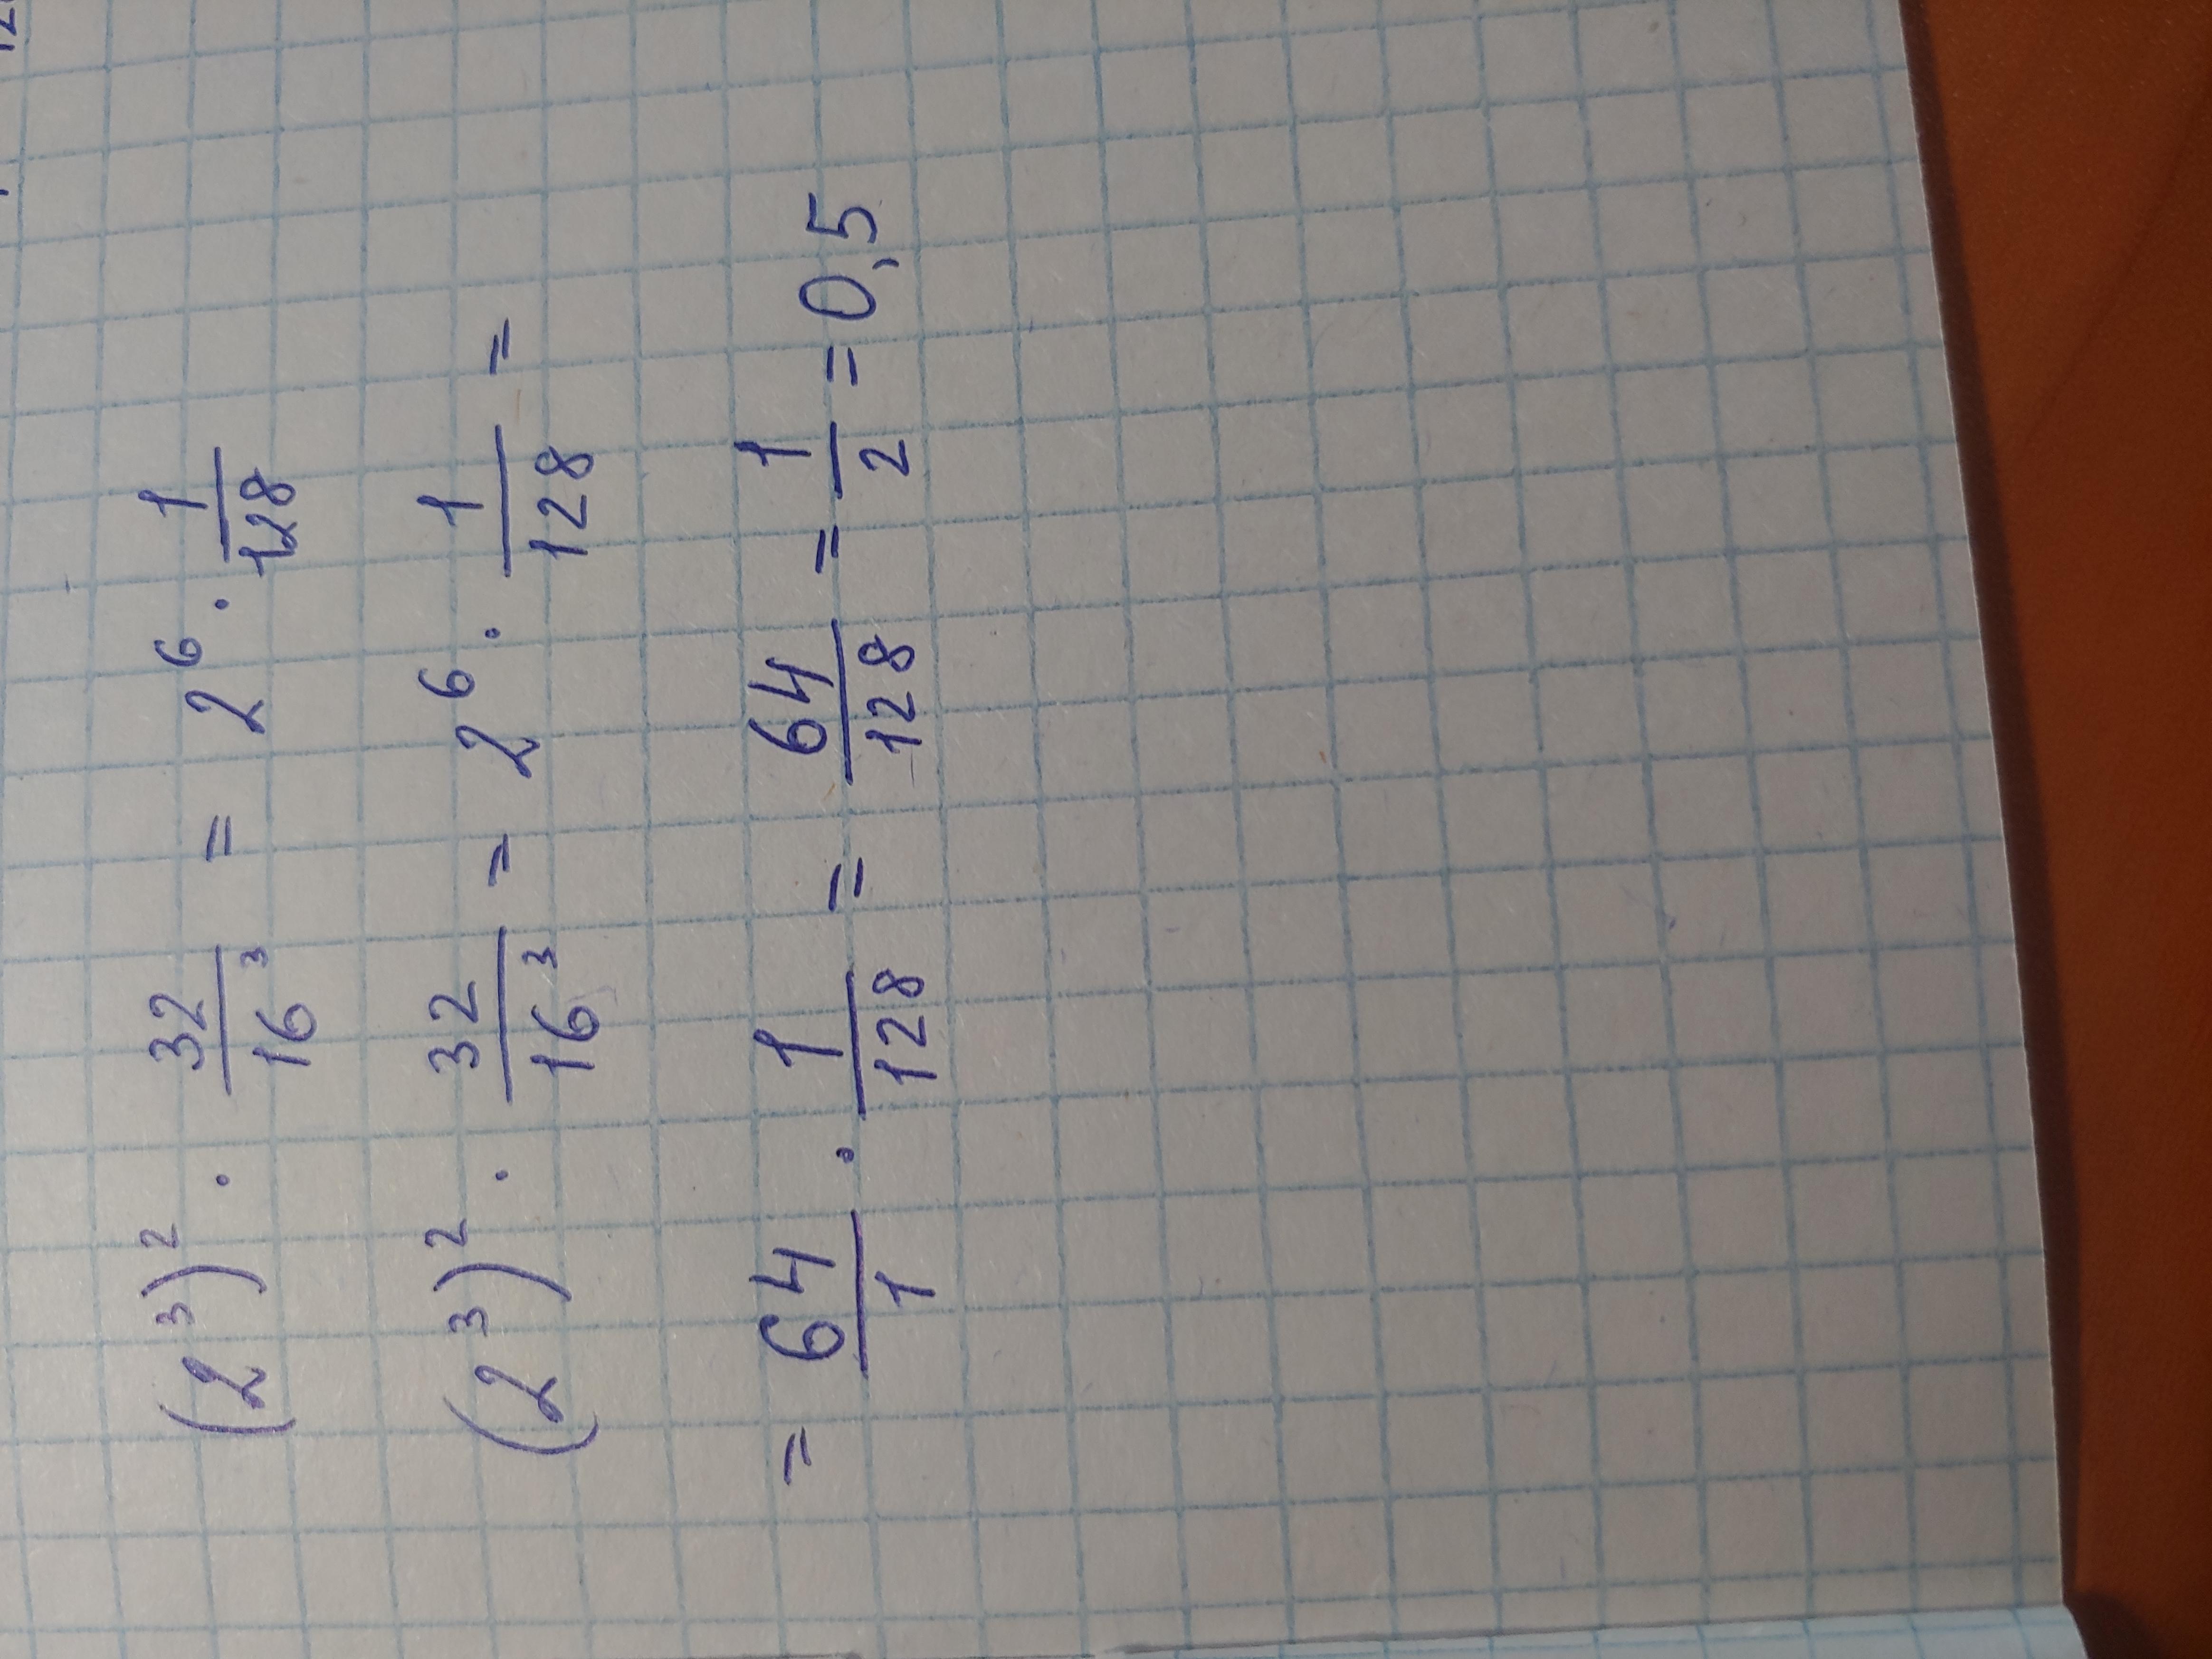 (2³)² · 32/16³ = 2⁶ · 1/128
(2³)² · 32/16³ = 2⁶ · 1/128 =
= 64/1 · 1/128 = 64/128 = 1/2 = 0,5